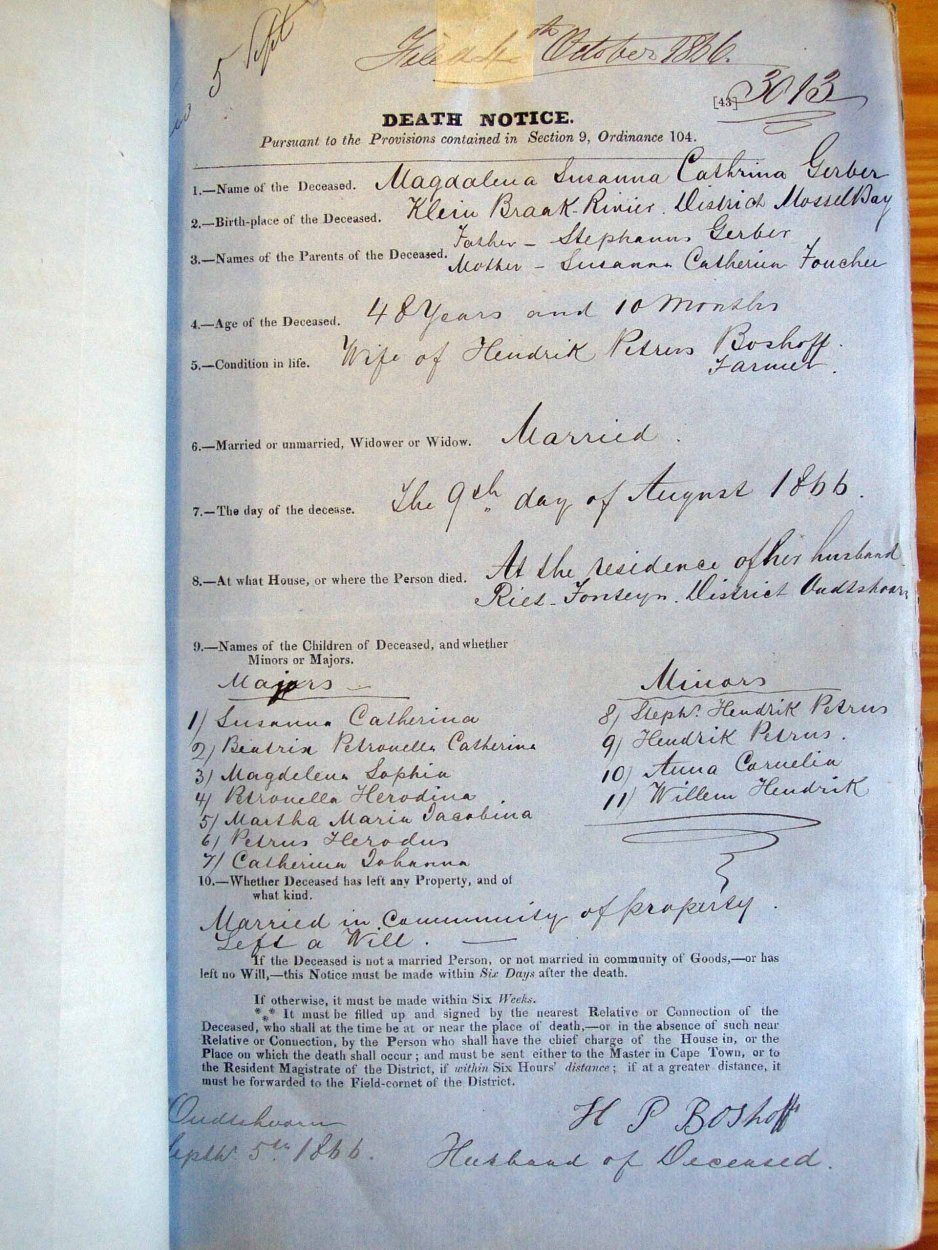 5 Sept
Filed 4th October 1866.
[43] 3013
DEATH NOTICE.
Pursuant to the Provisions contained in Section 9, Ordinance 104.
1.—Name of the Deceased. Magdalena Susanna Cathrina Gerber
2.—Birth-place of the Deceased. Klein Braak Rivier. District Mossel Bay
3.—Names of the Parents of the Deceased. Father – Stephanus Gerber
Mother – Susanna Catherina Fouchee
4.—Age of the Deceased. 48 Years and 10 Months
5.—Condition in life. Wife of Hendrik Petrus Boshoff.
Farmer.
6.—Married or unmarried, Widower or Widow. Married.
7.—The day of the decease. The 9th day of August 1866.
8.—At what House, or where the Person died. At the residence of her husband
Riet-Fonteyn. District Oudtshoorn
9.—Names of the Children of Deceased, and whether
Minors or Majors.
Majors – Minors
1/ Susanna Catherina 8/ Stephs. Hendrik Petrus
2/ Beatrix Petronella Catherina 9/ Hendrik Petrus.
3/ Magdelena Sophia 10/ Anna Cornelia
4/ Petronella Herodina 11/ Willem Hendrik
5/ Martha Maria Jacobina
6/ Petrus Herodus
7/ Catherina Johanna
10.—Whether Deceased has left any Property, and of
what kind.
Married in Community of property.
Left a Will. —
If the Deceased is not a married Person, or not married in community of Goods,—or has
left no Will,—this Notice must be made within Six Days after the death.
If otherwise, it must be made within Six Weeks.
*** It must be filled up and signed by the nearest Relative or Connection of the
Deceased, who shall at the time be at or near the place of death,—or in the absence of such near
Relative or Connection, by the Person who shall have the chief charge of the House in, or the
Place on which the death shall occur; and must be sent either to the Master in Cape Town, or to
the Resident Magistrate of the District, if within Six Hours' distance; if at a greater distance, it
must be forwarded to the Field-cornet of the District.
Oudtshoorn H P Boshoff
Septbr 5th 1866. Husband of Deceased.